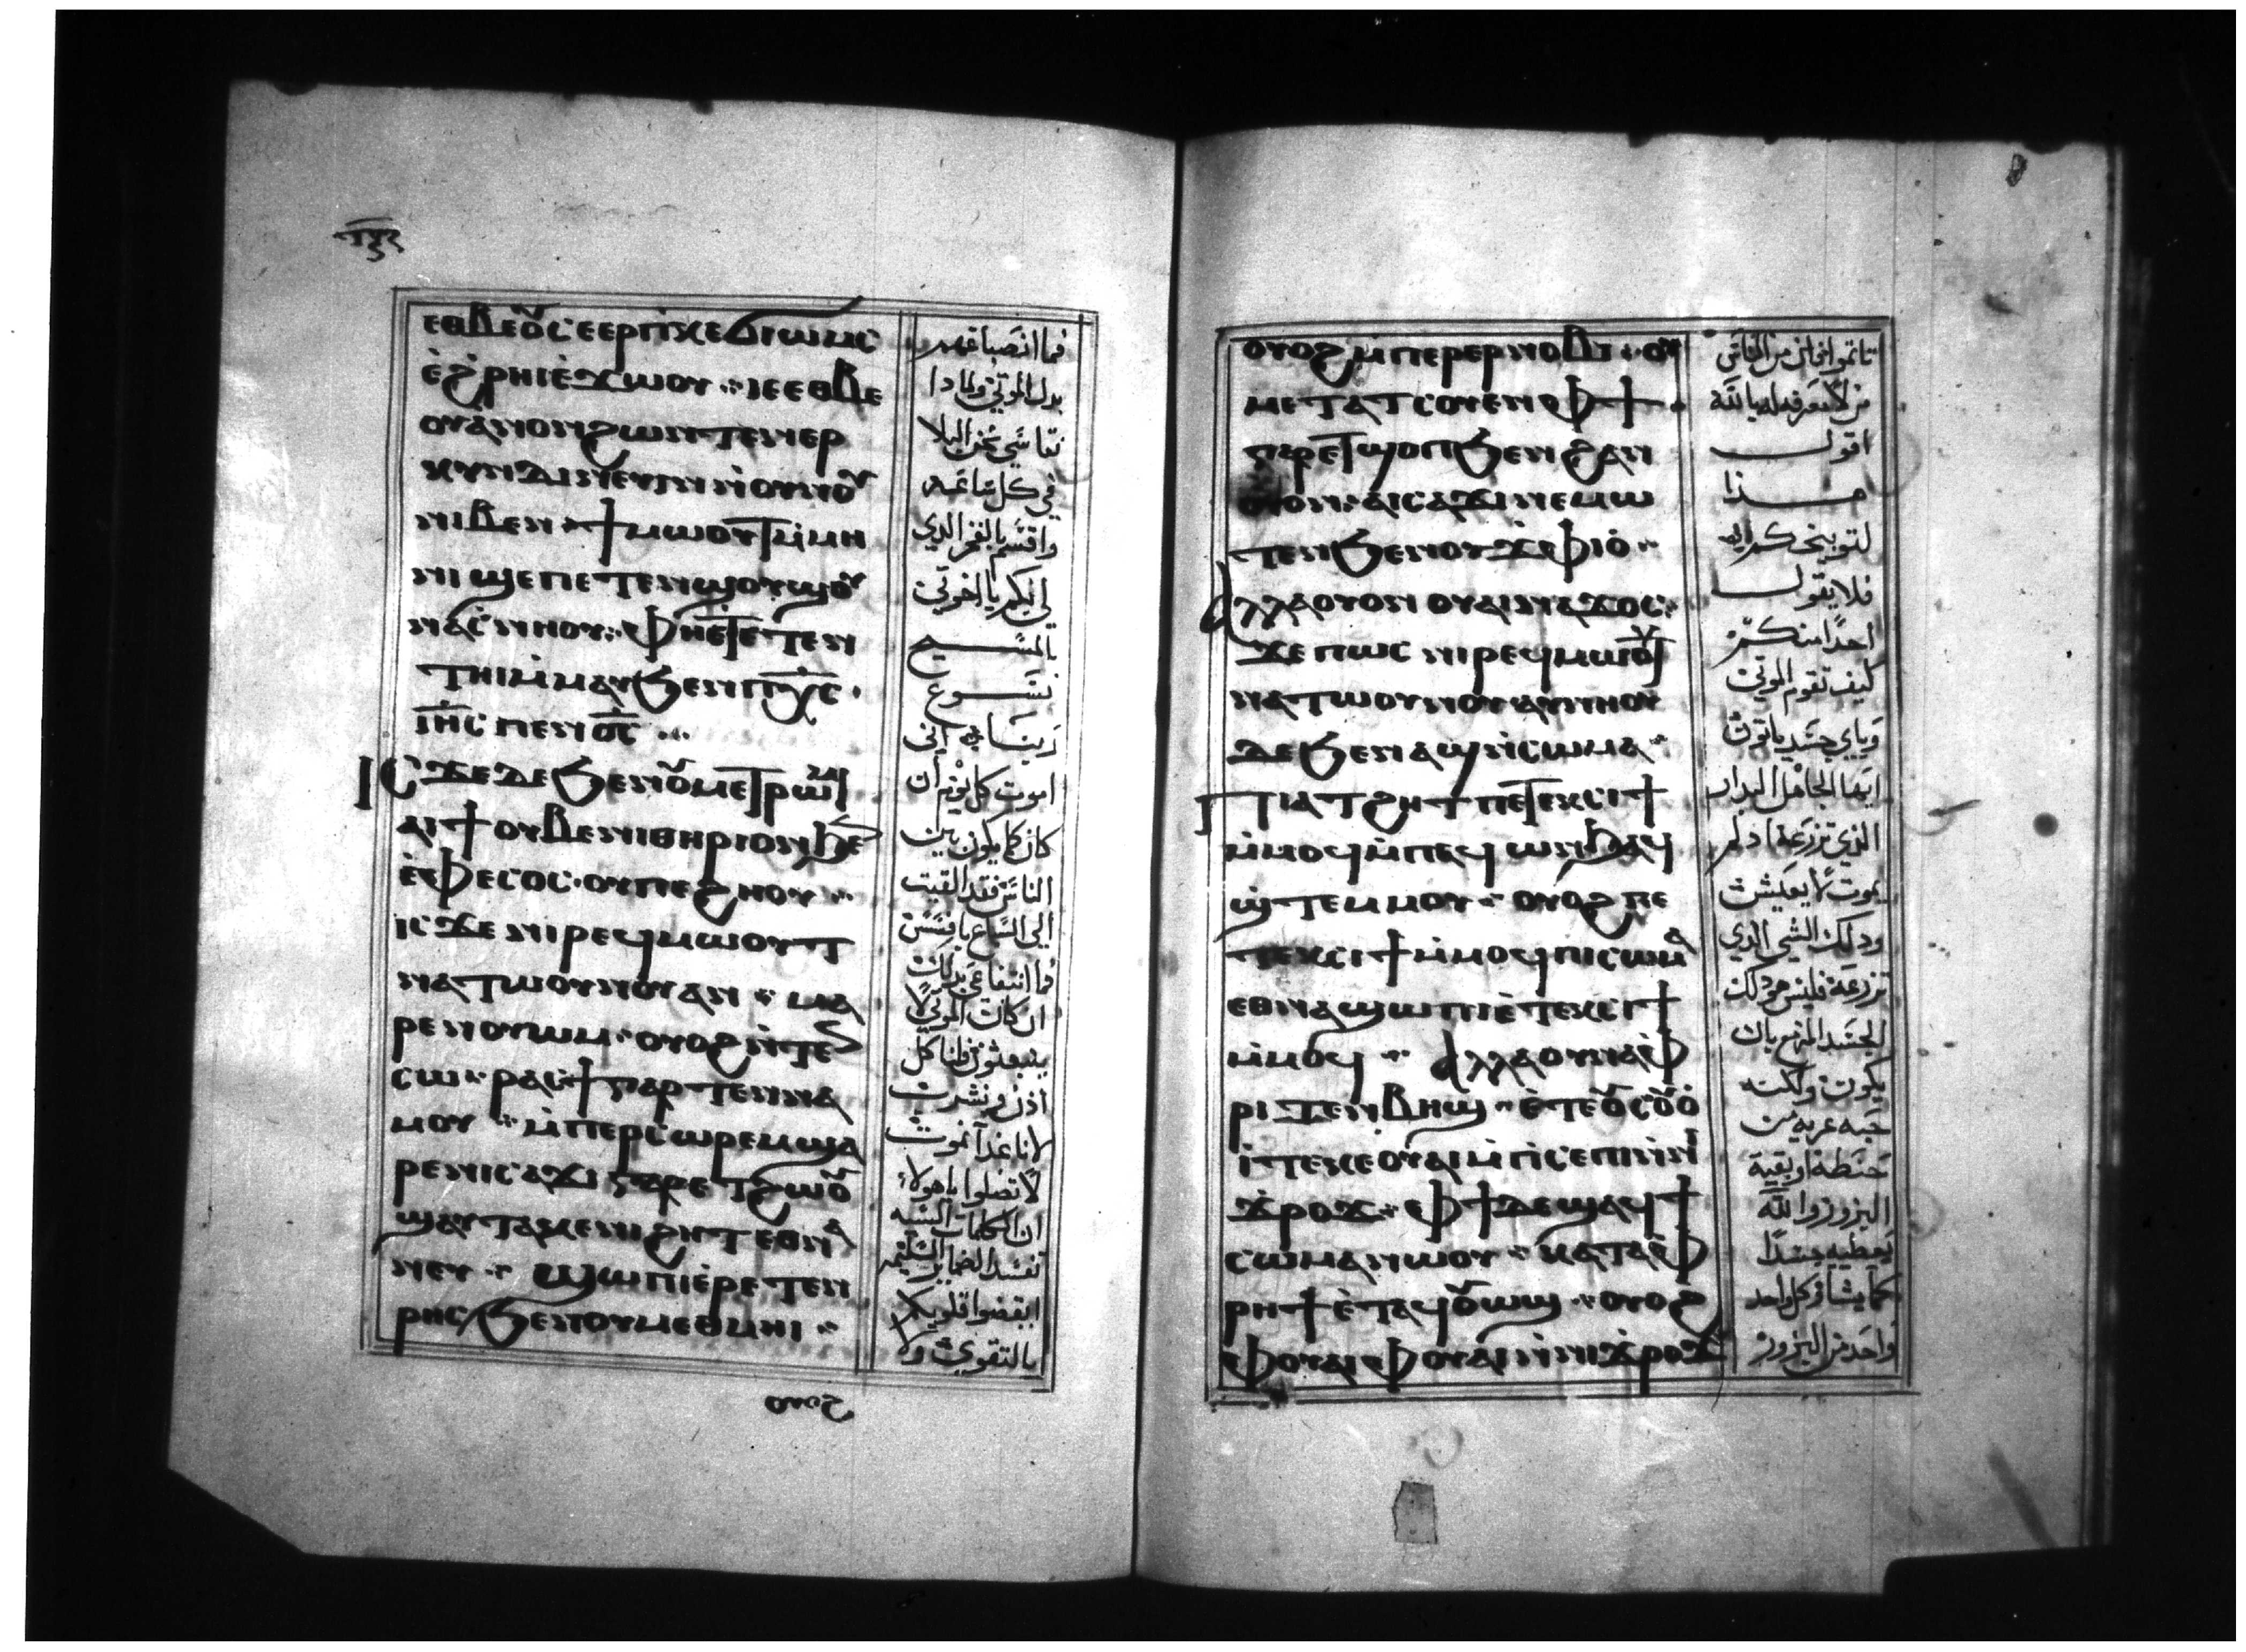 ⲉⲑⲃⲉⲟⲩ ⲥⲉⲉⲣⲡⲓⲕⲉϭⲓⲱⲙⲥ
ⲉ̀ϩ̀ⲣⲏⲓ ⲉ̀ϫⲱⲟⲩ ⁘ ⲓⲉ ⲉⲑⲃⲉ
ⲟⲩ ⲁ̀ⲛⲟⲛ ϩⲱⲛ ⲧⲉⲛⲉⲣ
ⲕⲩⲛⲇⲓⲛⲉⲩⲓⲛ ⲛ̀ⲟⲩⲛⲟⲩ
ⲛⲓⲃⲉⲛ ⁘ ϯⲙⲱⲟⲩⲧ ⲙ̀ⲙⲏ
ⲛⲓ ϣⲉ ⲡⲉⲧⲉⲛϣⲟⲩϣⲟⲩ
ⲛⲁⲥ̀ⲛⲏⲟⲩ ⁘ ⲫⲏⲉ̀ⲧⲉⲧⲉⲛ
ⲧⲏⲓ ⲙ̀ⲙⲁⲩ ϧⲉⲛ ⲡⲭ̅ⲥ̅ ·
ⲓⲏ̅ⲥ ⲡⲉⲛⲟ̅ⲥ̅ ⁘
ⲓⲥϫⲉ ⲇⲉ ϧⲉⲛ ⲟⲩⲙⲉⲧⲣⲱⲙⲓ
ⲁⲓϯ ⲟⲩⲃⲉ ⲛⲓⲑⲏⲣⲓⲟⲛ ϧⲉⲛ
ⲉ̀ⲫⲉⲥⲟⲥ · ⲟⲩ ⲡⲉ ϩⲏⲟⲩ ⁘
ⲓⲥϫⲉ ⲛⲓⲣⲉϥⲙⲱⲟⲩⲧ
ⲛⲁⲧⲱⲟⲩⲛⲟⲩ ⲁⲛ ⁘ ⲙⲁ
ⲣⲉⲛⲟⲩⲱⲙ · ⲟⲩⲟϩ ⲛ̀ⲧⲉⲛ
ⲥⲱ · ⲣⲁⲥϯ ⲅⲁⲣ ⲧⲉⲛⲛⲁ
ⲙⲟⲩ ⁘ ⲙ̀ⲡⲉⲣⲥⲱⲣⲉⲙ ϣⲁ
ⲣⲉ ⲛⲓⲥⲁϫⲓ ⲅⲁⲣ ⲉⲧϩⲱⲟⲩ
ϣⲁⲩⲧⲁⲕⲉ ⲛⲓϩⲏⲧ ⲉⲑⲛⲁ
ⲛⲉⲩ ⁘ ϣⲱⲡⲓ ⲉ̀ⲣⲉⲧⲉⲛ
ⲣⲏⲥ ϧⲉⲛ ⲟⲩⲙⲉⲑⲙⲏⲓ ⁘
ⲟⲩⲟϩ
بدل الموتى ولماذا
نقاسي نحن البلا
في كل ساعة
واقسم بالفخر الذي
لي بكم يا اخوتي
بالمسيح
يسوع
ربنا اني
اموت كل يوم ان
كان كما يكون بين
الناس فقد القيت
الى السباع بافسس
فما انتفاعي بذلك
ان كان الموتى لا
ينبعثون فلناكل
اذن ونشرب
لانا غدا نموت
لا تضلوا يا هولاء
ان الكلمات السيه
تفسد الضماير السليمه
ايقضوا قلوبكم
بالتقوى ولا
ⲟⲩⲟϩ ⲙ̀ⲡⲉⲣⲉⲣⲛⲟⲃⲓ ⁘ ⲟⲩ
ⲙⲉⲧⲁⲧⲥⲟⲩⲉⲛ ⲫϯ ·
ⲅⲁⲣ ⲉⲧϣⲟⲡ ϧⲉⲛ ϩⲁⲛ
ⲟⲩⲟⲛ ⁘ ⲁⲓⲥⲁϫⲓ ⲛⲉⲙⲱ
ⲧⲉⲛ ϧⲉⲛ ⲟⲩϫⲫⲓⲟ̀ ⁘
ⲁⲗⲗⲁ ⲟⲩⲟⲛ ⲟⲩⲁⲓ ⲛⲁϫⲟⲥ ·
ϫⲉ ⲡⲱⲥ ⲛⲓⲣⲉϥⲙⲱⲟⲩⲧ
ⲛⲁⲧⲱⲟⲩⲛⲟⲩ ⲁⲩⲛⲏⲟⲩ
ⲇⲉ ϧⲉⲛ ⲁϣ ⲛ̀ⲥⲱⲙⲁ ⁘
ⲡⲓⲁⲧϩⲏⲧ ⲡⲉⲧⲉⲕⲥⲓϯ
ⲙ̀ⲙⲟϥ ⲙ̀ⲡⲉϥⲱⲛϧ ⲁϥ
ϣⲧⲉⲙⲙⲟⲩ ⁘ ⲟⲩⲟϩ ⲡⲉ
ⲧⲉⲕⲥⲓϯ ⲙ̀ⲙⲟϥ ⲡⲓⲥⲱⲙⲁ
ⲉⲑⲛⲁϣⲱⲡⲓ ⲉ̀ⲧⲉⲕⲥⲓϯ
ⲙ̀ⲙⲟϥ ⁘ ⲁⲗⲗⲁ ⲟⲩⲛⲁⲫ
ⲣⲓ ⲧⲉⲛⲃⲏϣ ⁘ ⲉ̀ⲧⲉ ⲟⲩⲥⲟⲩⲟ̀
ⲓ̀ⲧⲉ ⲕⲉⲟⲩⲁⲓ ⲙ̀ⲡⲥⲉⲡⲓ ⲛ̀ⲛⲓ
ϫ̀ⲣⲟϫ ⁘ ⲫϯ ⲇⲉ ϣⲁϥϯ
ⲥⲱⲙⲁ ⲛⲱⲟⲩ ⁘ ⲕⲁⲧⲁ ⲫ
ⲣⲏϯ ⲉ̀ⲧⲁϥⲟⲩⲱϣ ⁘ ⲟⲩⲟϩ
ⲫⲟⲩⲁⲓ ⲫⲟⲩⲁⲓ ⲛ̀ⲛⲓϫ̀ⲣⲟϫ
اقول
هذا
فلا يقول
كيف تقوم الموتى
وباي جسد ياتون
ايها الجاهل البدار
الذي تزرعه اذا لم
يموت لا يعيش
وذلك الشي الذي
تزرعه فليس هو ذلك
الجسد المزمع بان
يكون ولكنه
حبه عريه من
حنطة او بقية
البزور والله
يعطيه جسدا
كما يشا وكل واحد
واحد من البزور